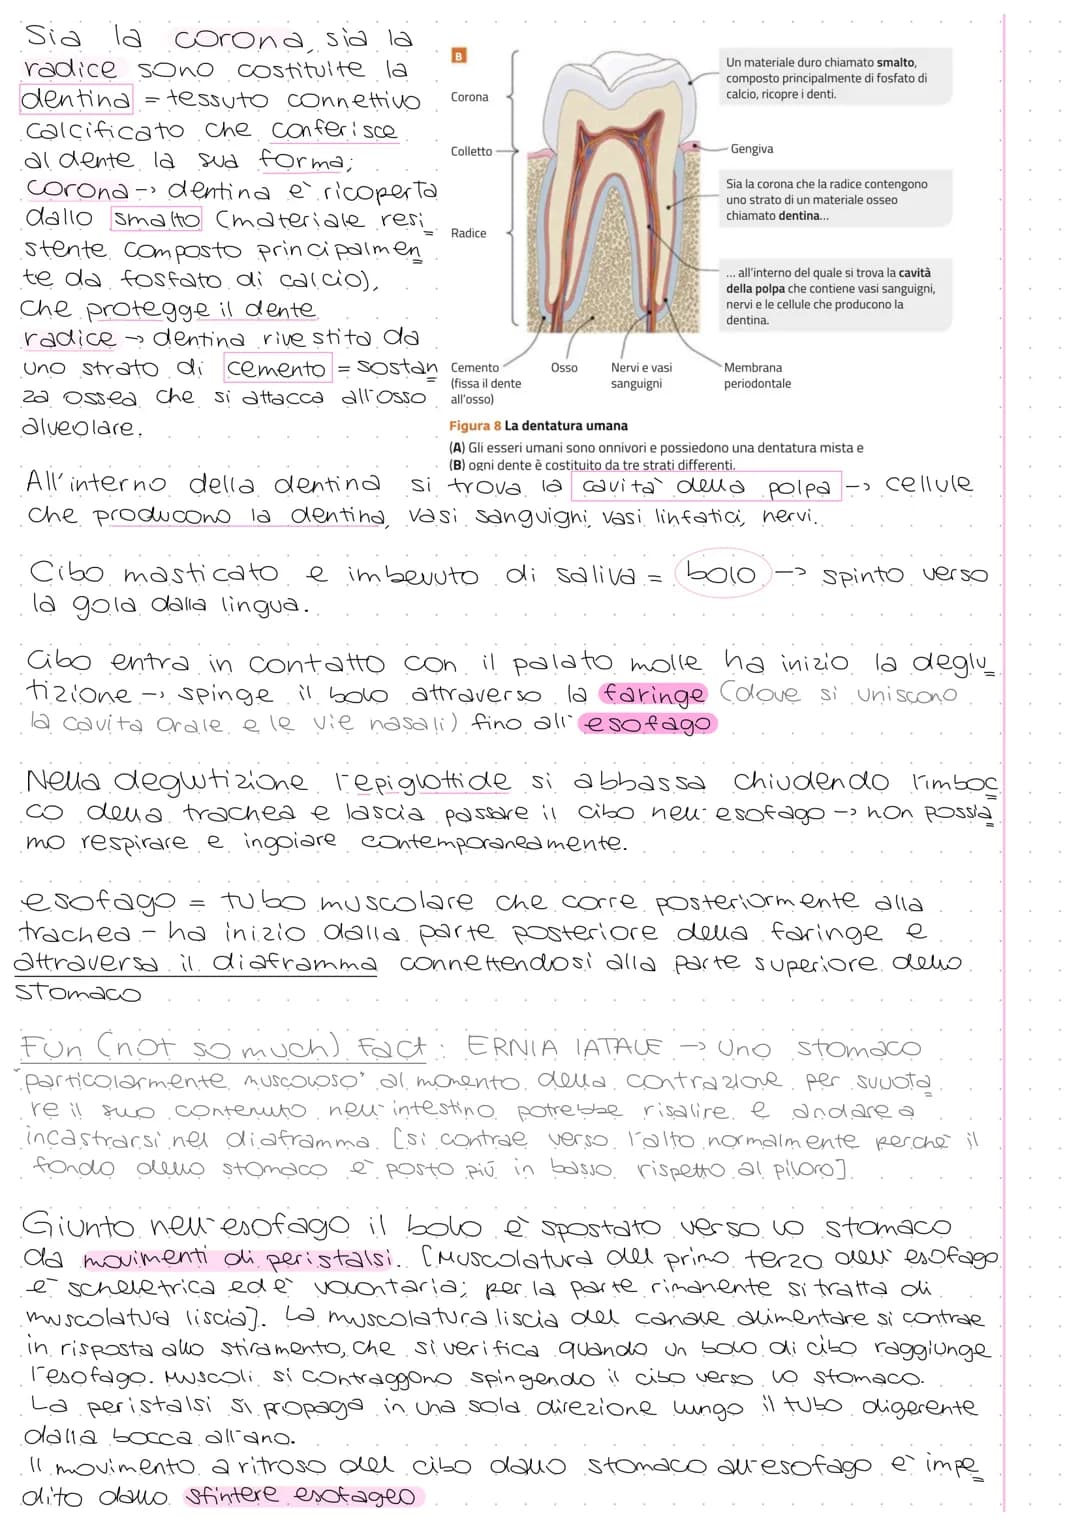 Sia la corona, sia la
radice sono costituite la
dentina = tessuto connettivo
calcificato che conferisce
al dente la sua forma;
corona -> dentina è ricoperta
dallo smalto (materiale resi
stente composto principalmen
te da fosfato di calcio),
che protegge il dente
radice -> dentina rivestita da
uno strato di cemento = sostan
za ossea che si attacca all'osso
alveolare.
B
Corona
Colletto
Radice
Un materiale duro chiamato smalto,
composto principalmente di fosfato di
calcio, ricopre i denti.
Gengiva
Sia la corona che la radice contengono
uno strato di un materiale osseo
chiamato dentina...
... all'interno del quale si trova la cavità
della polpa che contiene vasi sanguigni,
nervi e le cellule che producono la
dentina.
Cemento
(fissa il dente
all'osso)
Osso
Nervi e vasi
sanguigni
Membrana
periodontale
Figura 8 La dentatura umana
(A) Gli esseri umani sono onnivori e possiedono una dentatura mista e
(B) ogni dente è costituito da tre strati differenti.
All'interno della dentina si trova la cavità della polpa -> cellule
che producono la dentina, vasi sanguighi, vasi linfatici, nervi.
Cibo masticato e imbevuto di saliva = bolo -> spinto verso
la gola dalla lingua.
Cibo entra in contatto con il palato molle ha inizio la deglu
tizione -> spinge il bolo attraverso la faringe (dove si uniscono
la cavita orale e le vie nasali) fino all'esofago
Nella deglutizione l'epiglottide si abbassa chiudendo l'imboc
co della trachea e lascia passare il cibo nell'esofago -> non possia
mo respirare e ingoiare contemporaneamente.
esofago = tubo muscolare che corre posteriormente alla
trachea - ha inizio dalla parte posteriore della faringe e
attraversa il diaframma connettendosi alla parte superiore dello
stomaco
Fun (not so much) Fact: ERNIA IATALE -> Uno stomaco
"particolarmente muscoloso" al momento della contrazione per svuota
re il suo contenuto nell'intestino potrebbe risalire e andare a
incastrarsi nel diaframma. [si contrae verso l'alto normalmente perché il
fondo dello stomaco è posto più in basso rispetto al piloro].
Giunto nell'esofago il bolo è spostato verso lo stomaco
da movimenti di peristalsi. [Muscolatura del primo terzo dell'esofago
è scheletrica ed è volontaria; per la parte rimanente si tratta di
muscolatura liscia]. La muscolatura liscia del canale alimentare si contrae
in risposta allo stiramento, che si verifica quando un bolo di cibo raggiunge
l'esofago. Muscoli si contraggono spingendo il cibo verso lo stomaco.
La peristalsi si propaga in una sola direzione lungo il tubo digerente
dalla bocca all'ano.
Il movimento a ritroso del cibo dallo stomaco all'esofago è impe
dito dallo sfintere esofageo